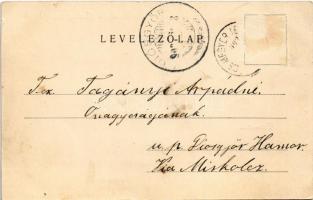 LEVELEZŐ-LAP.
Tagányi Árpádné
Őnagyságának.
u. p. Diósgyőr Hámor.
Via Miskolcz.